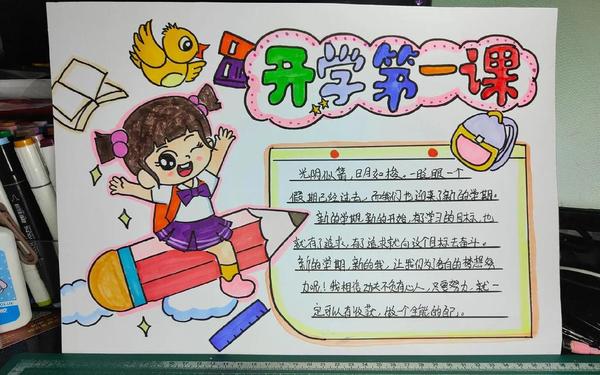 开学第一课
光阴似箭,日月如梭。一眨眼一个
假期已经过去。而我们也迎来了新的学期。
新的学期,新的开始,有学习的目标,也
就有了追求,有了追求就向这个目标去奋斗。
新的学期,新的我,让我们为了各自的梦想努
力吧!我相信功夫不负有心人,只要努力,就一
定可以有收获,做一个全能的